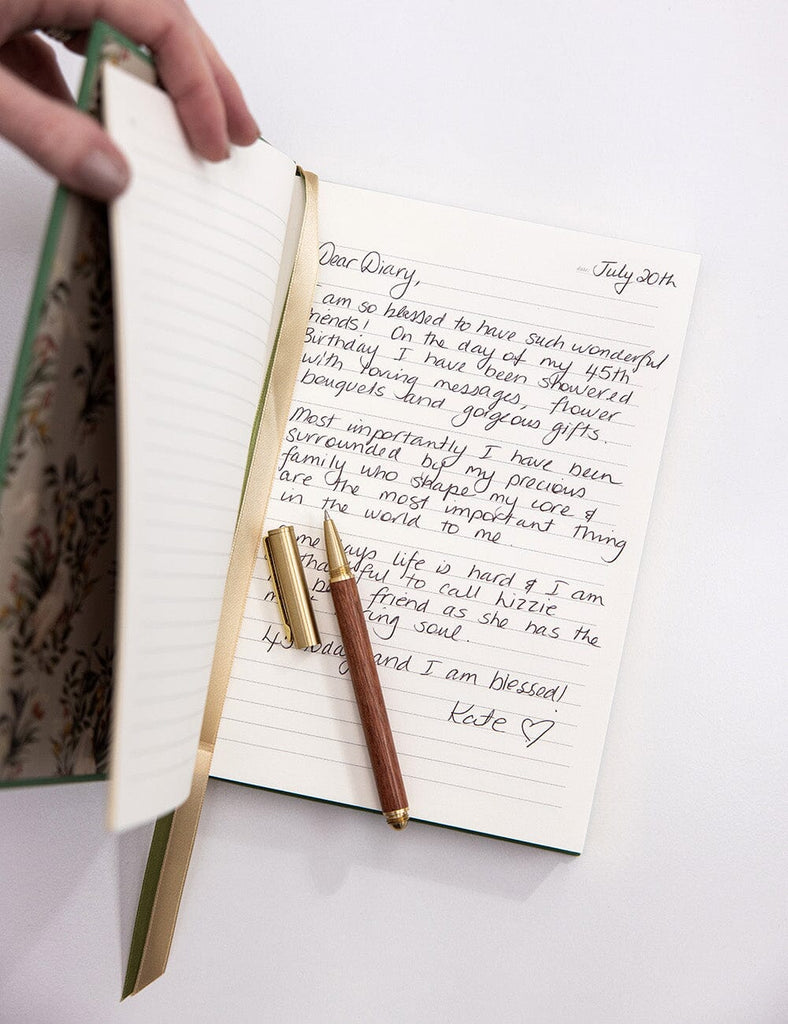 Date: July 20th
Dear Diary,
I am so blessed to have such wonderful
friends! On the day of my 45th
Birthday I have been showered
with loving messages, flower
bouquets and gorgeous gifts.
Most importantly I have been
surrounded by my precious
family who shape my core &
are the most important thing
in the world to me.
life is hard & I am
to call Lizzie
friend as she has the
soul.
and I am blessed!
Kate ♡